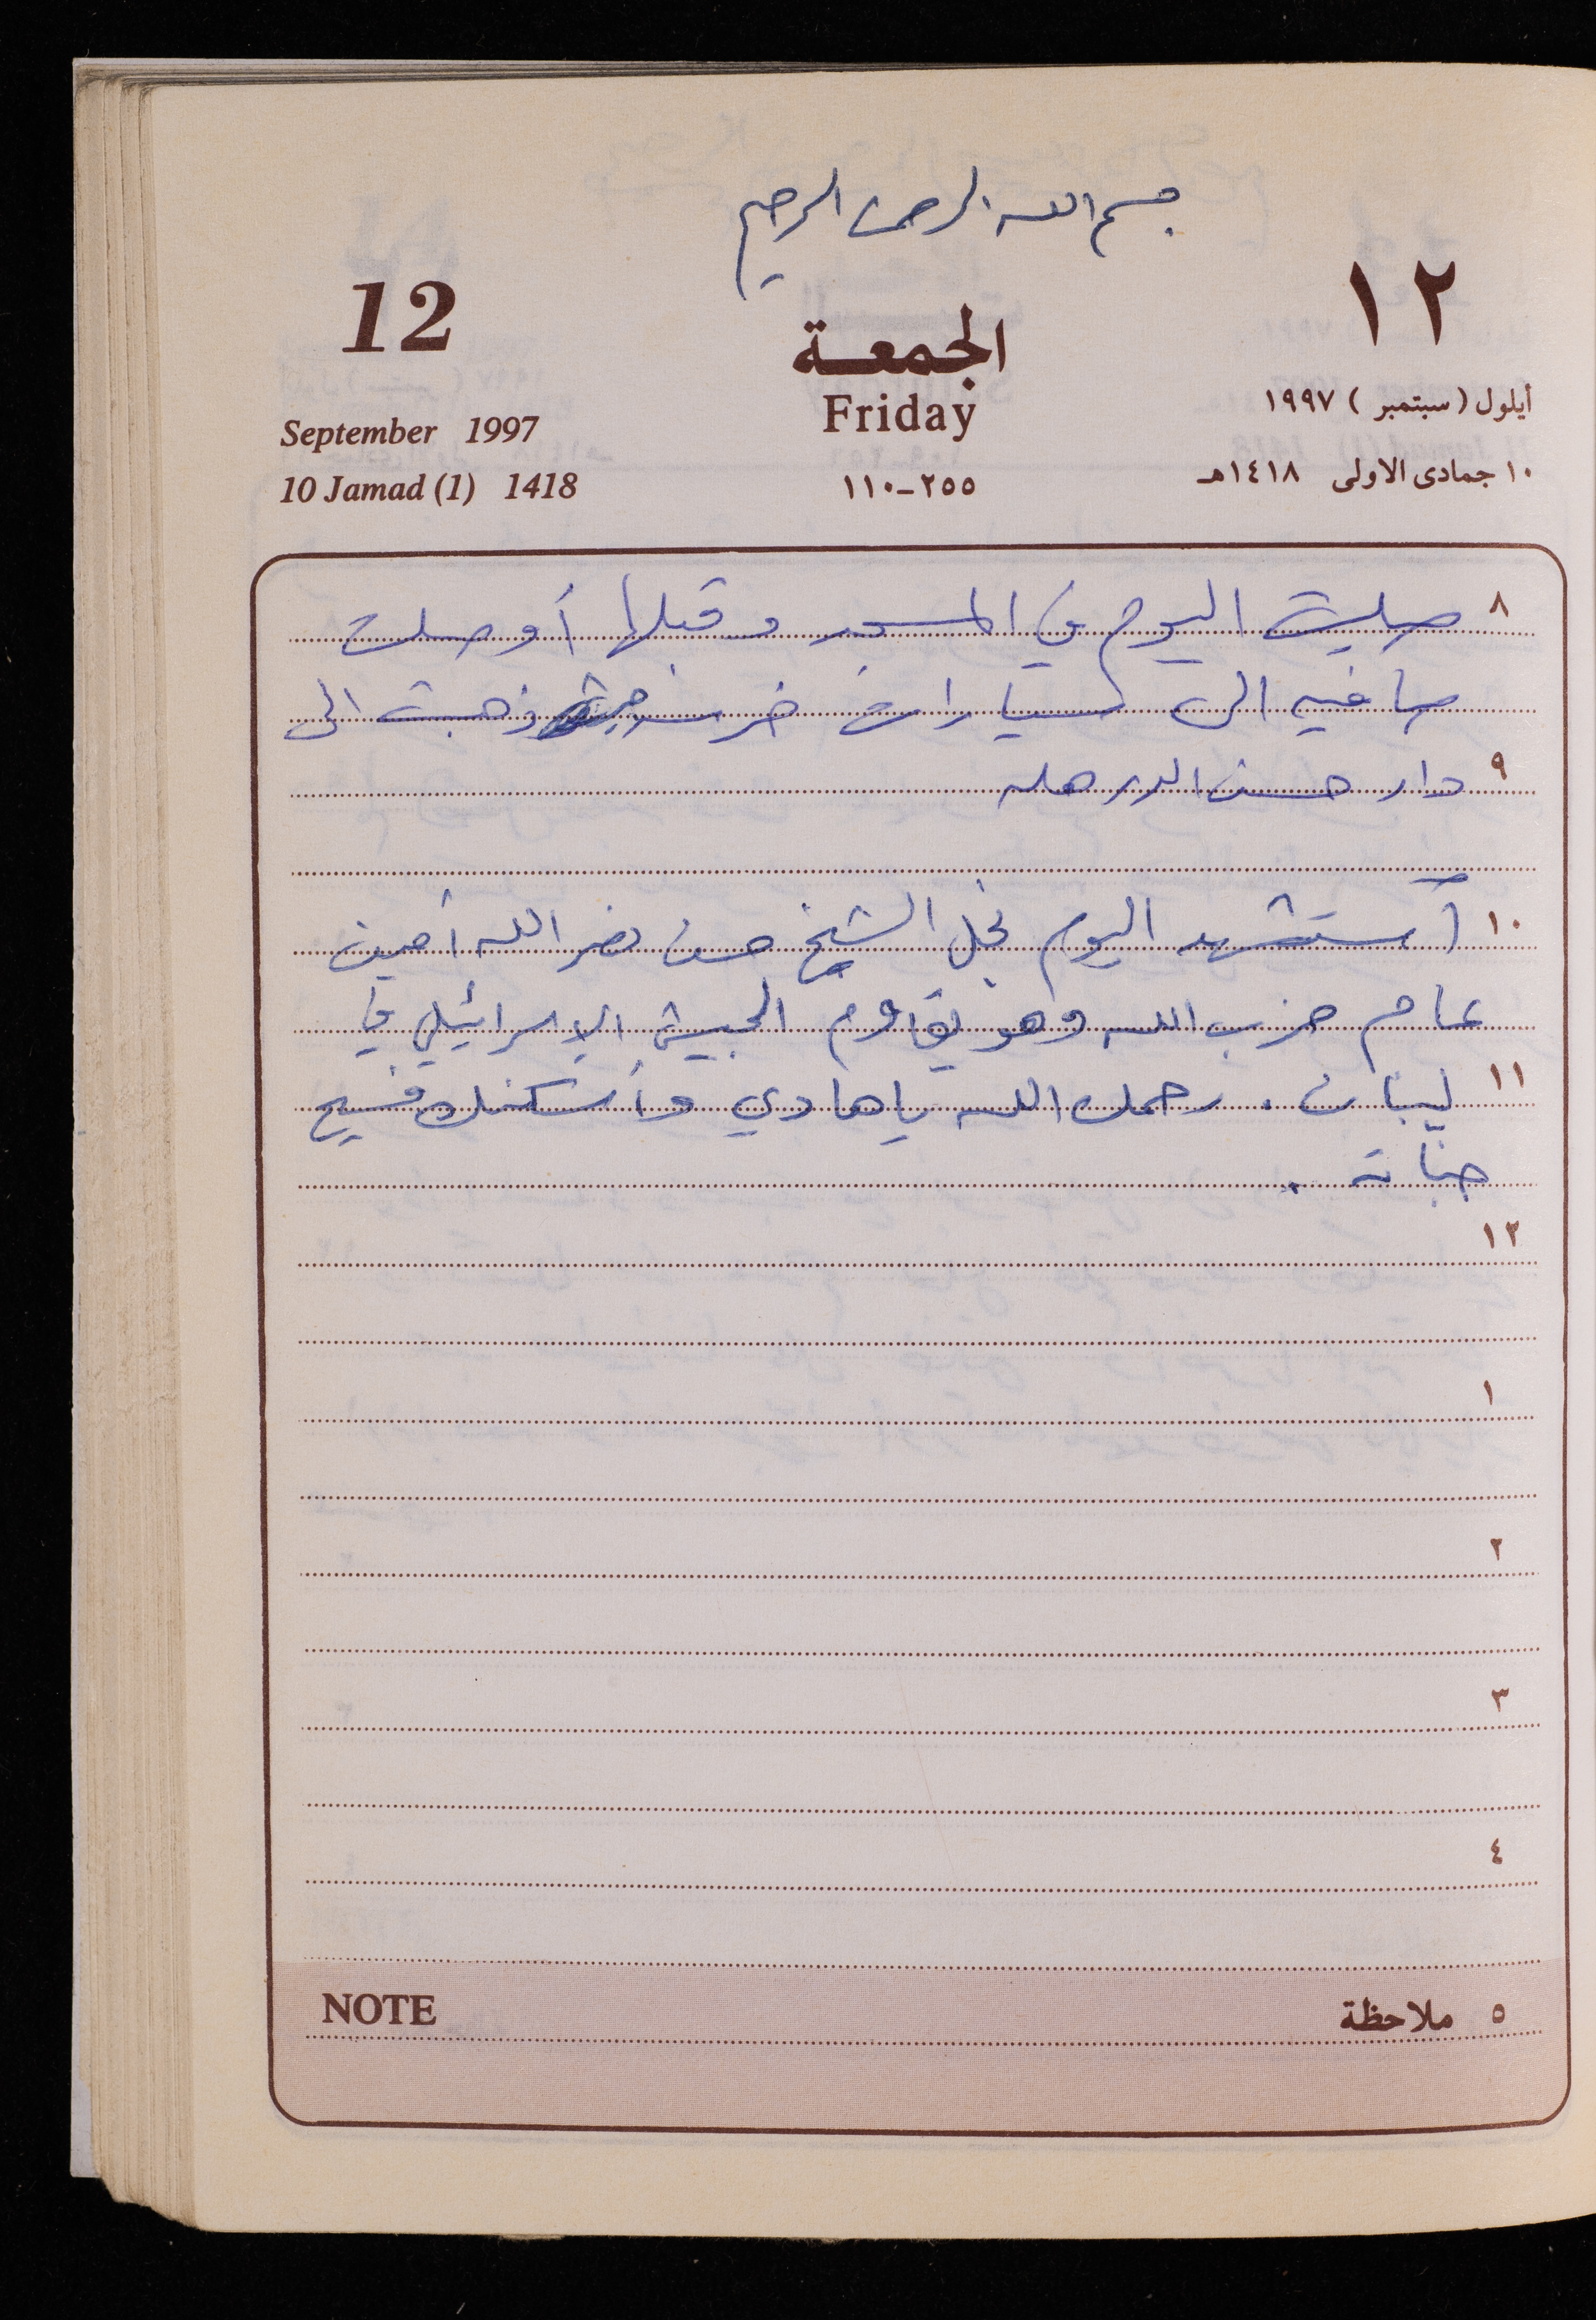 بسم الله الرحمن الرحيم
12
الجمعة
١٢
Friday
September 1997
أيلول (سبتمبر) ١٩٩٧
10 Jamad (1) 1418
٢٥٥-١١٠
١٠ جمادى الاولى ١٤١٨هـ
٨ صليت اليوم في المسجد وقبلها أوصلت
صافيه الى سيارات ذهبت الى
٩ دار حسن
١٠ أستشهد اليوم نجل الشيخ حسن نصر الله أمين
عام حزب الله وهو يقاوم الجيش الإسرائيلي في
١١ لبنان. رحمك الله يا هادي وأسكنك فسيح
جناته.
١٢
١
٢
٣
٤
NOTE
٥ ملاحظة